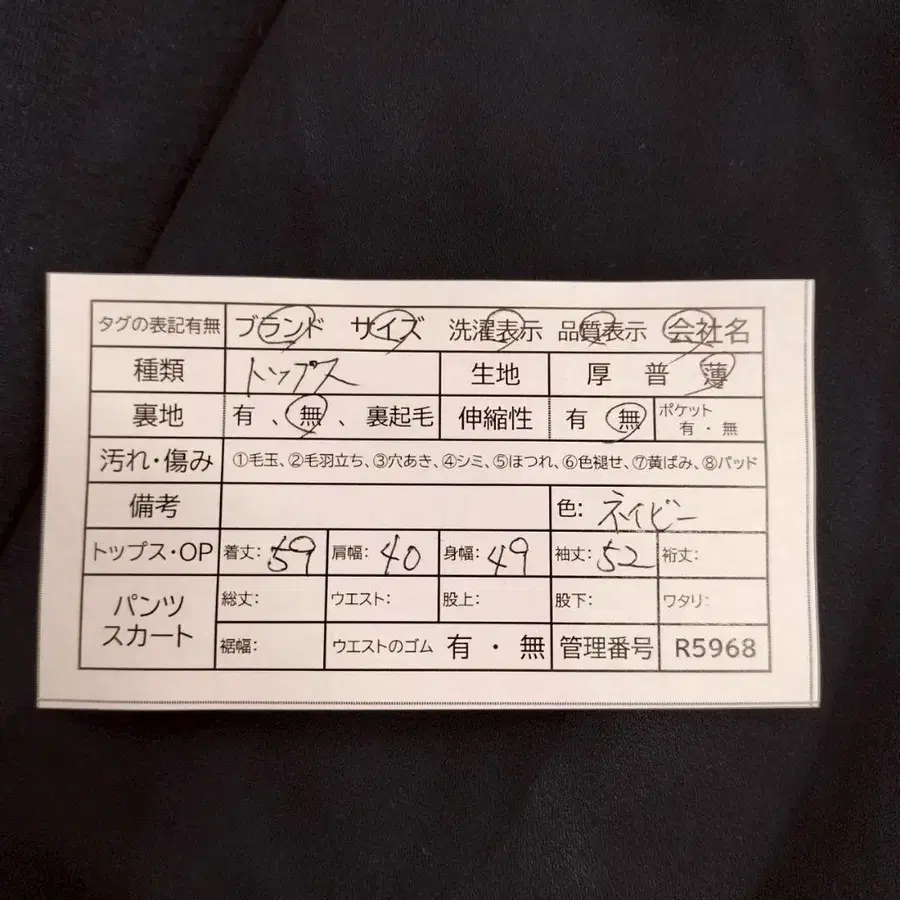 タグの表記有無 ブランド サイズ 洗濯表示 品質表示 会社名
種類 トップス 生地 厚 普 薄
裏地 有 、無 、裏起毛 伸縮性 有 無 ポケット 有・無
汚れ・傷み ①毛玉、②毛羽立ち、③穴あき、④シミ、⑤ほつれ、⑥色褪せ、⑦黄ばみ、⑧パッド
備考 色: ネイビー
トップス・OP 着丈: 59 肩幅: 40 身幅: 49 袖丈: 52 裄丈:
パンツ スカート 総丈: ウエスト: 股上: 股下: ワタリ:
裾幅: ウエストのゴム 有・無 管理番号 R5968